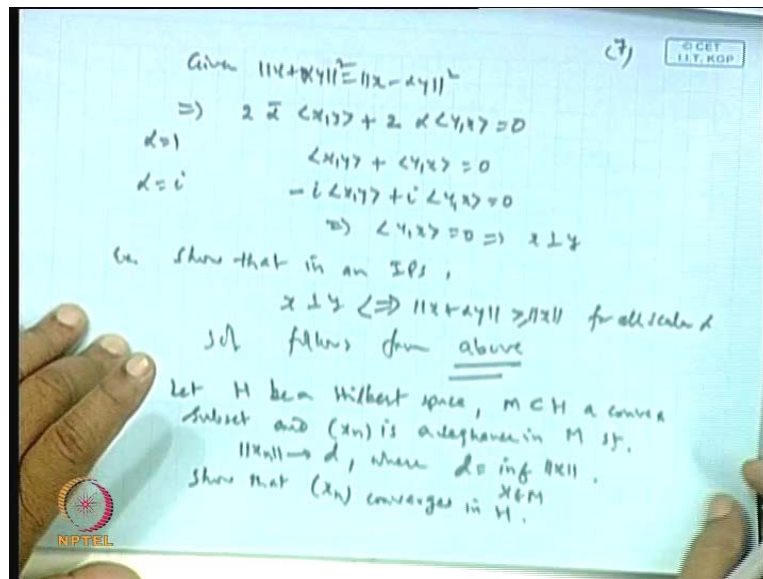 (7)
© CET
I.I.T. KGP
Given ||x+αy||² = ||x-αy||²
⇒) 2 ᾱ <x,y> + 2 α <y,x> = 0
α=1 <x,y> + <y,x> = 0
α=i -i <x,y> + i <y,x> = 0
⇒) <y,x> = 0 ⇒) x ⊥ y
Ex. Show that in an IPS,
x ⊥ y <⇒ ||x+αy|| ≥ ||x|| for all scalar α
Sol follows from above
Let H be a Hilbert space, M ⊂ H a convex
subset and (xn) is a sequence in M st.
||xn|| → d, where d = inf ||x||.
x∈M
Show that (xn) converges in H.
NPTEL